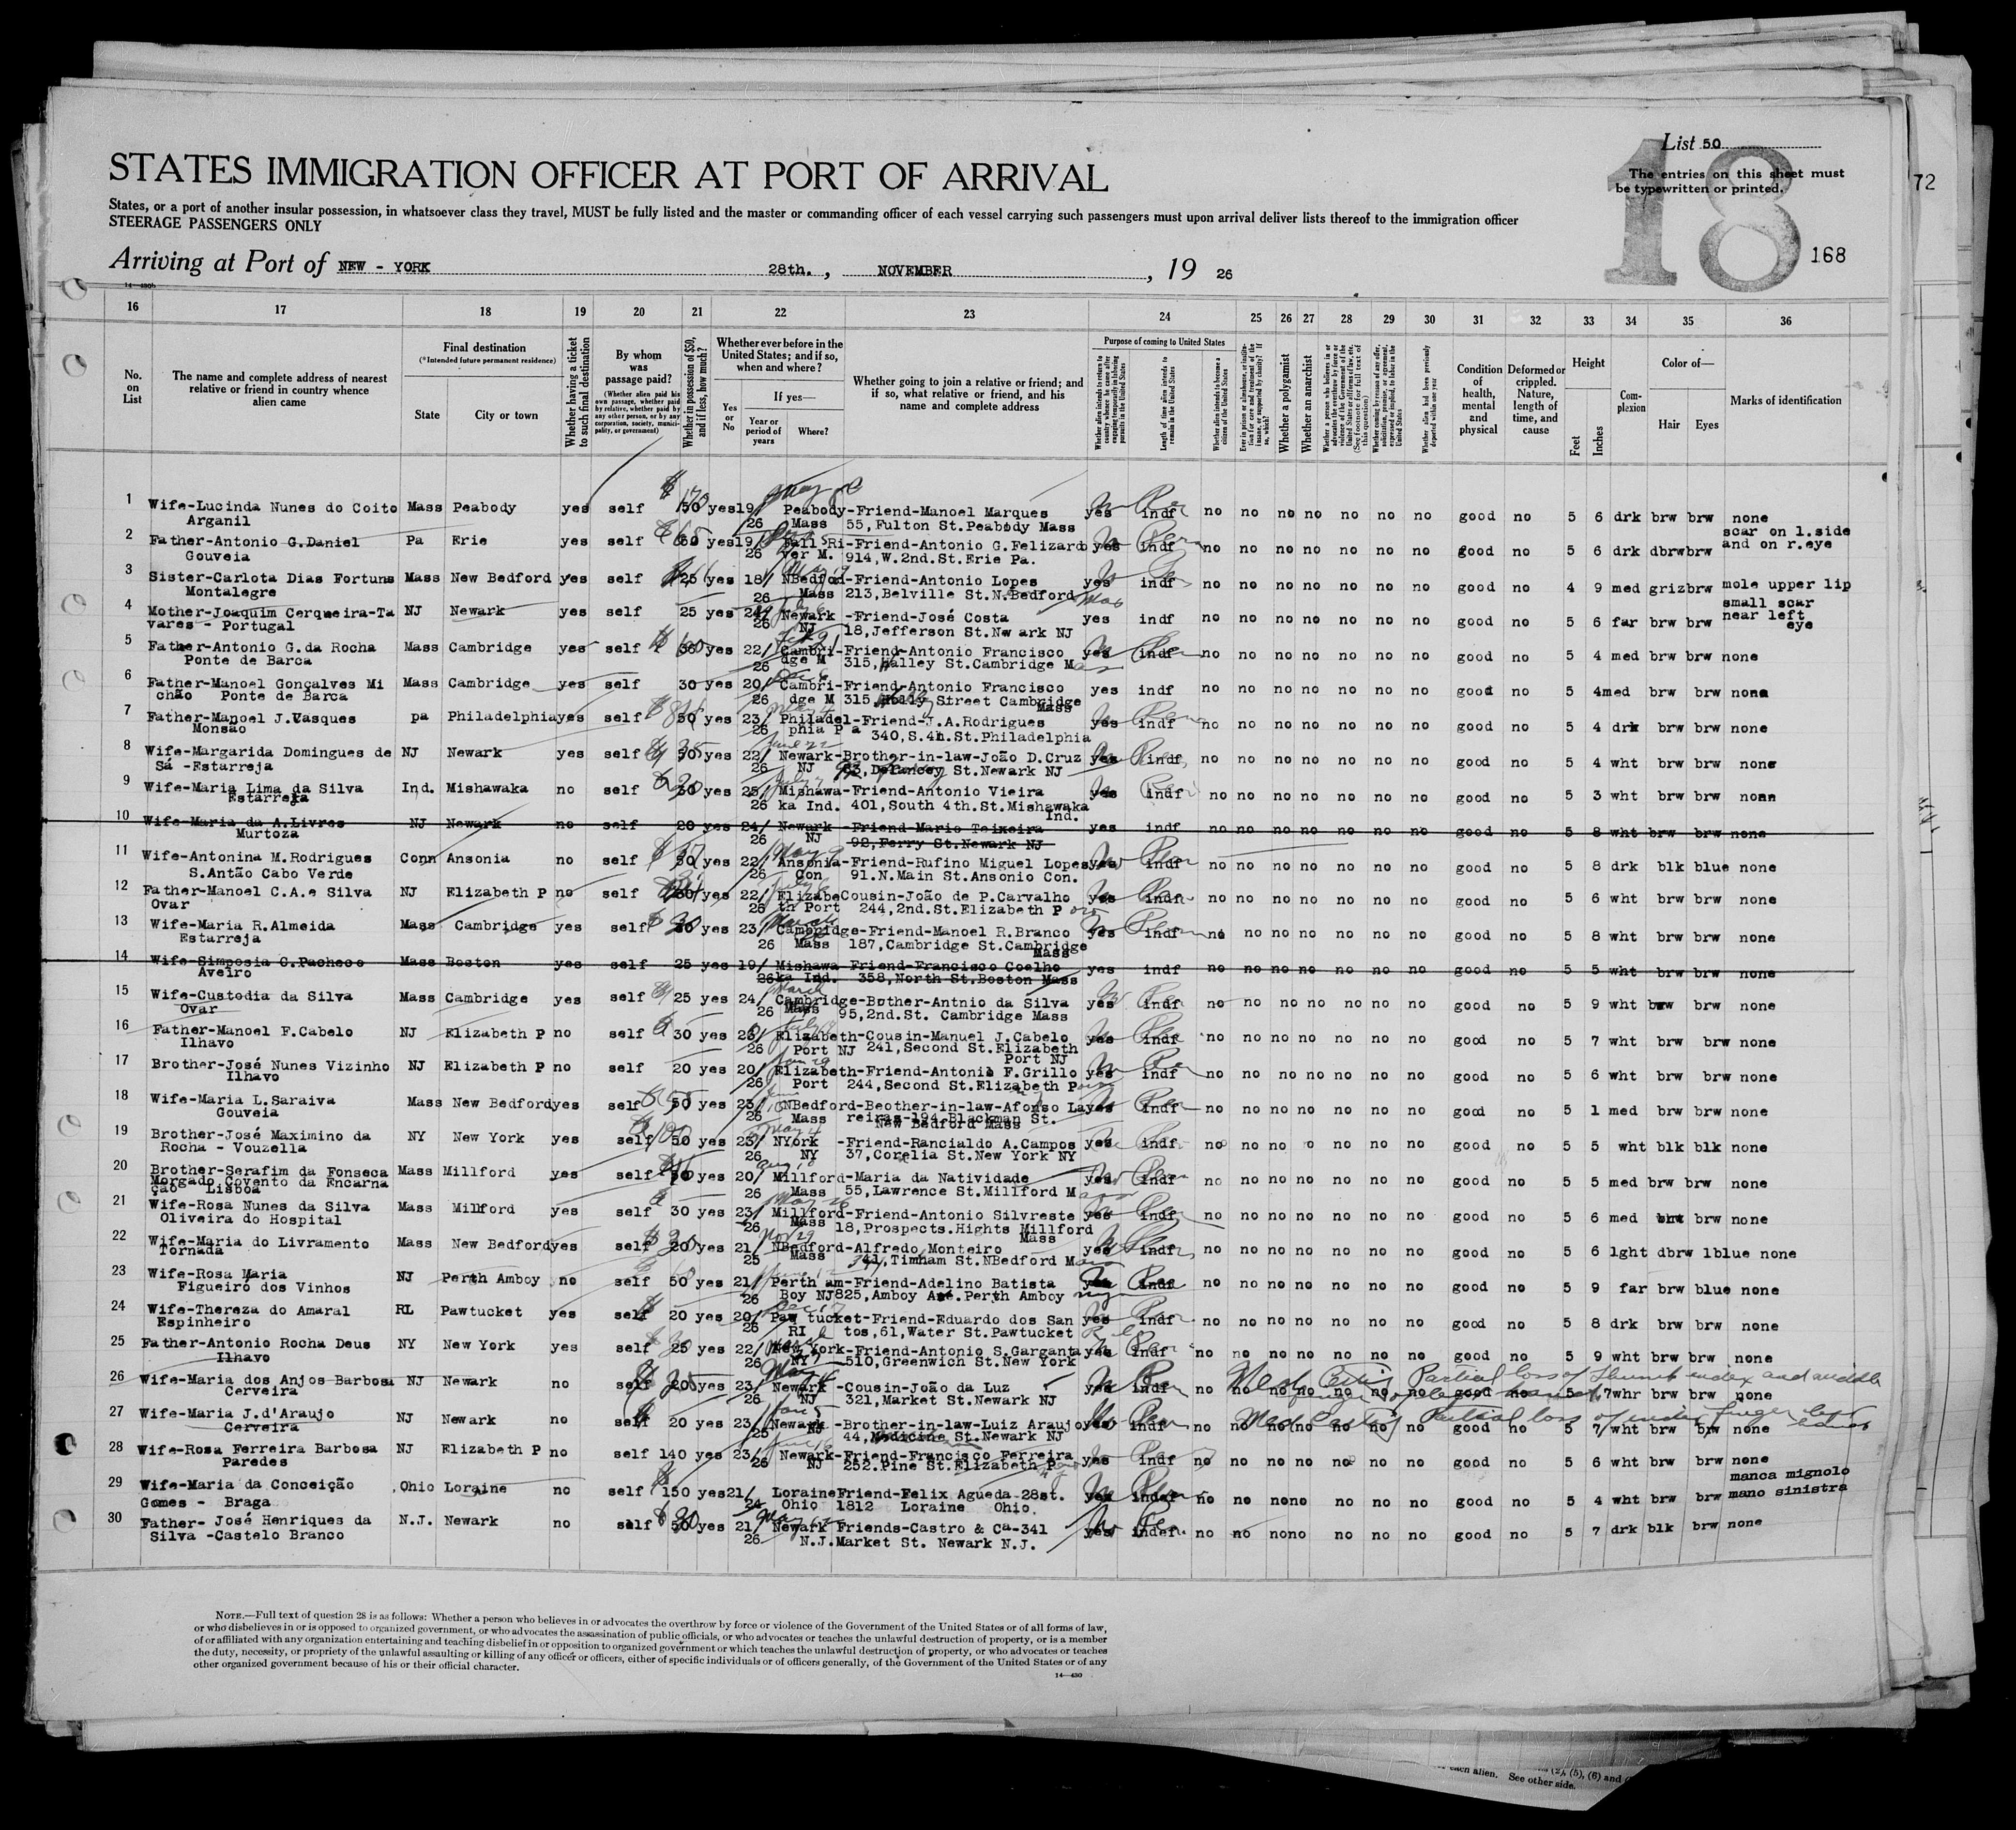 List 50
18
The entries on this sheet must
be typewritten or printed.
72
168
STATES IMMIGRATION OFFICER AT PORT OF ARRIVAL
States, or a port of another insular possession, in whatsoever class they travel, MUST be fully listed and the master or commanding officer of each vessel carrying such passengers must upon arrival deliver lists thereof to the immigration officer
STEERAGE PASSENGERS ONLY
Arriving at Port of NEW - YORK 28th. , NOVEMBER , 19 26
14—430b
16 17 18 19 20 21 22 23 24 25 26 27 28 29 30 31 32 33 34 35 36
No. on List
The name and complete address of nearest relative or friend in country whence alien came
Final destination
(*Intended future permanent residence)
State
City or town
Whether having a ticket to such final destination
By whom was passage paid?
(Whether alien paid his own passage, whether paid by relative, whether paid by any other person, or by any corporation, society, municipality, or government)
Whether in possession of $50, and if less, how much?
Whether ever before in the United States; and if so, when and where?
Yes or No
If yes—
Year or period of years
Where?
Whether going to join a relative or friend; and if so, what relative or friend, and his name and complete address
Purpose of coming to United States
Whether alien intends to return to country whence he came after engaging temporarily in laboring pursuits in the United States
Length of time alien intends to remain in the United States
Whether alien intends to become a citizen of the United States
Whether a polygamist
Whether an anarchist
Whether alien had been previously deported within one year
Condition of health, mental and physical
Deformed or crippled. Nature, length of time, and cause
Height
Feet
Inches
Complexion
Color of—
Hair
Eyes
Marks of identification
1 Wife-Lucinda Nunes do Coito Mass Peabody yes self 50 yes 19/ Peabody-Friend-Manoel Marques yes indf no no no no no no no good no 5 6 drk brw brw none
Arganil 26 Mass 55,Fulton St.Peabody Mass
2 Father-Antonio G.Daniel Pa Erie yes self 60 yes 19/ Fall Ri-Friend-Antonio G.Felizardo yes indf no no no no no no no good no 5 6 drk dbrw brw scar on l.side
Gouveia 26 ver M. 914,W.2nd.St.Erie Pa. and on r.eye
3 Sister-Carlota Dias Fortuns Mass New Bedford yes self 25 yes 18/ NBedfod-Friend-Antonio Lopes yes indf no no no no no no no good no 4 9 med griz brw mole upper lip
Montalegre 26 Mass 213,Belville St.N.Bedford
4 Mother-Joaquim Cerqueira-Ta NJ Newark yes self 25 yes 24/ Newark -Friend-José Costa yes indf no no no no no no no good no 5 6 far brw brw small scar
vares - Portugal 26 NJ 18,Jefferson St.Nw ark NJ near left eye
5 Father-Antonio G.da Rocha Mass Cambridge yes self 36 yes 22/ Cambri-Friend-Antonio Francisco yes indf no no no no no no no good no 5 4 med brw brw none
Ponte de Barca 26 dge M 315,Halley St.Cambridge Mass
6 Father-Manoel Gonçalves Mi Mass Cambridge yes self 30 yes 20/ Cambri-Friend-Antonio Francisco yes indf no no no no no no no good no 5 4 med brw brw none
chão Ponte de Barca 26 dge M 315 Street Cambridge Mass
7 Father-Manoel J.Vasques pa Philadelphia yes self 50 yes 23/ Philadel-Friend-J.A.Rodrigues yes indf no no no no no no no good no 5 4 drk brw brw none
Monsao 26 phia P a 340,S.4h.St.Philadelphia
8 Wife-Margarida Domingues de NJ Newark yes self 50 yes 22/ Newark-Brother-in-law-João D.Cruz yes indf, no no no no no no no good no 5 4 wht brw brw none
Sá -Estarreja 26 NJ Delancey St.Newark NJ
9 Wife-Maria Lima da Silva Ind. Mishawaka no self 30 yes 25/ Mishawa-Friend-Antonio Vieira yes indf no no no no no no no good no 5 3 wht brw brw nonn
Estarreja 26 ka Ind. 401,South 4th.St.Mishawaka Ind.
10 Wife-Maria da A.Livres NJ Newark no self 20 yes 24/ Newark -Friend Mario Teixeira yes indf no no no no no no no good no 5 8 wht brw brw none
Murtoza 26 NJ 92,Ferry St.Newark NJ
11 Wife-Antonina M.Rodrigues Conn Ansonia no self 50 yes 22/ Ansonia-Friend-Rufino Miguel Lopes yes indf no no no no no no no good no 5 8 drk blk blue none
S.Antão Cabo Verde 26 Con 91.N.Main St.Ansonio Con.
12 Father-Manoel C.A.e Silva NJ Elizabeth P no self yes 22/ Elizabe Cousin-João de P.Carvalho yes indf no no no no no no no good no 5 6 wht brw brw none
Ovar 26 th Port 244,2nd.St.Elizabeth P
13 Wife-Maria R.Almeida Mass Cambridge yes self 30 yes 23/ Cambridge-Friend-Manoel R.Branco yes indf no no no no no no no good no 5 8 wht brw brw none
Estarreja 26 Mass 187,Cambridge St.Cambridge Mass
14 Wife-Simposia C.Pacheco Mass Boston yes self 25 yes 19/ Mishawa Friend-Francisco Coelho yes indf no no no no no no no good no 5 5 wht brw brw none
Aveiro 26 ka Ind. 358,North St.Boston Mass
15 Wife-Custodia da Silva Mass Cambridge yes self 25 yes 24/ Cambridge-Bother-Antnio da Silva yes indf no no no no no no no good no 5 9 wht brw brw none
Ovar 26 Mass 95,2nd.St. Cambridge Mass
16 Father-Manoel F.Cabelo NJ Elizabeth P no self 30 yes 23/ Elizabeth-Cousin-Manuel J.Cabelo yes indf no no no no no no no good no 5 7 wht brw brw none
Ilhavo 26 Port NJ 241,Second St.Elizabeth Port NJ
17 Brother-José Nunes Vizinho NJ Elizabeth P no self 20 yes 20/ Elizabeth-Friend-Antonio F.Grillo yes indf no no no no no no no good no 5 6 wht brw brw none
Ilhavo 26 Port 244,Second St.Elizabeth P
18 Wife-Maria L.Saraiva Mass New Bedford yes self 50 yes 23/ NBedford-Beother-in-law-Afonso La yes indf no no no no no no no good no 5 1 med brw brw none
Gouveia Mass reiras-194,Blackman St. New Bedford Mass
19 Brother-José Maximino da NY New York yes self 50 yes 23/ NYork -Friend-Rancialdo A.Campos yes indf no no no no no no no good no 5 5 wht blk blk none
Rocha - Vouzella 26 NY 37,Corelia St.New York NY
20 Brother-Serafim da Fonseca Mass Millford yes self 50 yes 20/ Millford-Maria da Natividade yes indf no no no no no no no good no 5 5 med brw brw none
Morgado Covento da Encarna 26 Mass 55,Lawrence St.Millford M
ção Lisboa
21 Wife-Rosa Nunes da Silva Mass Millford yes self 30 yes 23/ Millford-Friend-Antonio Silvreste yes indf no no no no no no no good no 5 6 med brw none
Oliveira do Hospital 26 Mass 18,Prospects.Hights Millford Mass
22 Wife-Maria do Livramento Mass New Bedford yes self 20 yes 21/ NBedford-Alfredo Monteiro yes indf no no no no no no no good no 5 6 lght dbrw lblue none
Tornada 25 Mass 341,Timham St.NBedford M
23 Wife-Rosa Maria NJ Perth Amboy no self 50 yes 21/ Perth am-Friend-Adelino Batista yes indf no no no no no no no good no 5 9 far brw blue none
Figueiró dos Vinhos 26 Boy NJ 825,Amboy Ave.Perth Amboy
24 Wife-Thereza do Amaral RL Pawtucket yes self 20 yes 20/ Paw tucket-Friend-Eduardo dos San yes indf no no no no no no no good no 5 8 drk brw brw none
Espinheiro 26 RI tos,61,Water St.Pawtucket
25 Father-Antonio Rocha Deus NY New York yes self 25 yes 22/ New York-Friend-Antonio S.Garganta yes indf no no no no no no no good no 5 9 wht brw brw none
Ilhavo 26 NY 510,Greenwich St.New York
26 Wife-Maria dos Anjos Barbosa NJ Newark no self 20 yes 23/ Newark -Cousin-João da Luz yes indf no no no no no no no good no 5 7 whr brw brw none
Cerveira 26 NJ 321,Market St.Newark NJ
Partial loss of thumb index and middle
27 Wife-Maria J.d'Araujo NJ Newark no self 20 yes 23/ Newark -Brother-in-law-Luiz Araujo yes indf no no no no no no no good no 5 7 wht brw brw none
Cerveira 25 NJ 44, St.Newark NJ
Partial loss of index finger left
28 Wife-Rosa Ferreira Barbosa NJ Elizabeth P no self 140 yes 23/ Newark-Friend-Francisco Ferreira yes indf no no no no no no no good no 5 6 wht brw brw none
Paredes 26 NJ 252.Pine St.Elizabeth P
29 Wife-Maria da Conceição Ohio Loraine no self 150 yes 21/ Loraine Friend-Felix Agueda-28st. yes indef no no no no no no no good no 5 4 wht brw brw manca mignolo
Gomes - Braga 24 Ohio 1812 Loraine Ohio. mano sinistra
30 Father- José Henriques da N.J. Newark no self 50 yes 21/ Newark Friends-Castro & Cª-341 yes indef. no no no no no no no good no 5 7 drk blk brw none
Silva -Castelo Branco 26 N.J. Market St. Newark N.J.
NOTE.—Full text of question 28 is as follows: Whether a person who believes in or advocates the overthrow by force or violence of the Government of the United States or of all forms of law,
or who disbelieves in or is opposed to organized government, or who advocates the assassination of public officials, or who advocates or teaches the unlawful destruction of property, or is a member
of or affiliated with any organization entertaining and teaching disbelief in or opposition to organized government or which teaches the unlawful destruction of property, or who advocates or teaches
the duty, necessity, or propriety of the unlawful assaulting or killing of any officer or officers, either of specific individuals or of officers generally, of the Government of the United States or of any
other organized government because of his or their official character.
14—430
each alien. See other side.
(2), (5), (6) and